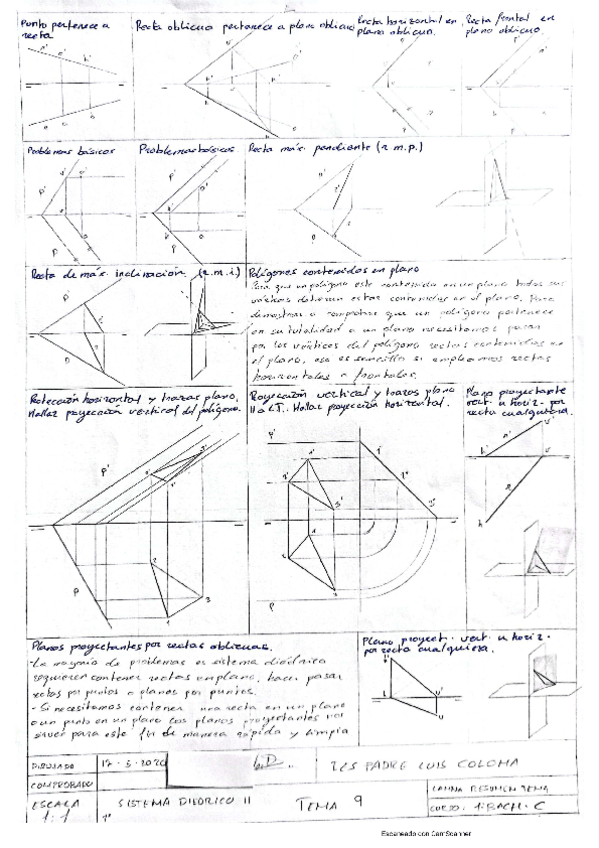 Punto pertenece a
recta
Recta oblicua pertenece a plano oblicuo
Recta horizontal en
plano oblicuo.
Recta frontal en
plano oblicuo
Problemas básicos
Problemas básicos
Recta máx. pendiente (r.m.p.)
Recta de máx. inclinación (r.m.i.)
Polígonos contenidos en plano
Para que un polígono este contenido en un plano todos sus
vértices deberan estar contenidos en el plano. Para
demostrar o comprobar que un polígono pertenece
en su totalidad a un plano necesitamos pasar
por los vértices del polígono rectas contenidas en
el plano, eso es sencillo si empleamos rectas
horizontales o frontales.
horizontal y trazas plano.
Hallar proyección vertical del polígono.
Proyección vertical y trazas plano
II a LT. Hallar proyección horizontal.
Plano proyectante
vert. u horiz. por
recta cualquiera.
Planos proyectantes por rectas oblicuas.
-La mayoría de problemas en sistema diédrico
requieren contener rectas en plano, hacer pasar
rectas por puntos o planos por puntos.
-Si necesitamos contener una recta en un plano
o un punto en un plano los planos proyectantes nos
sirven para este fin de manera rápida y limpia
Plano proyect. vert. u horiz.
por recta cualquiera.
DIBUJADO
17-3-2020
IES PADRE LUIS COLOMA
COMPROBADO
ESCALA
1:1
SISTEMA DIEDRICO II
TEMA 9
LAMINA RESUMEN TEMA
CURSO: 1ºBACH-C
Escaneado con CamScanner